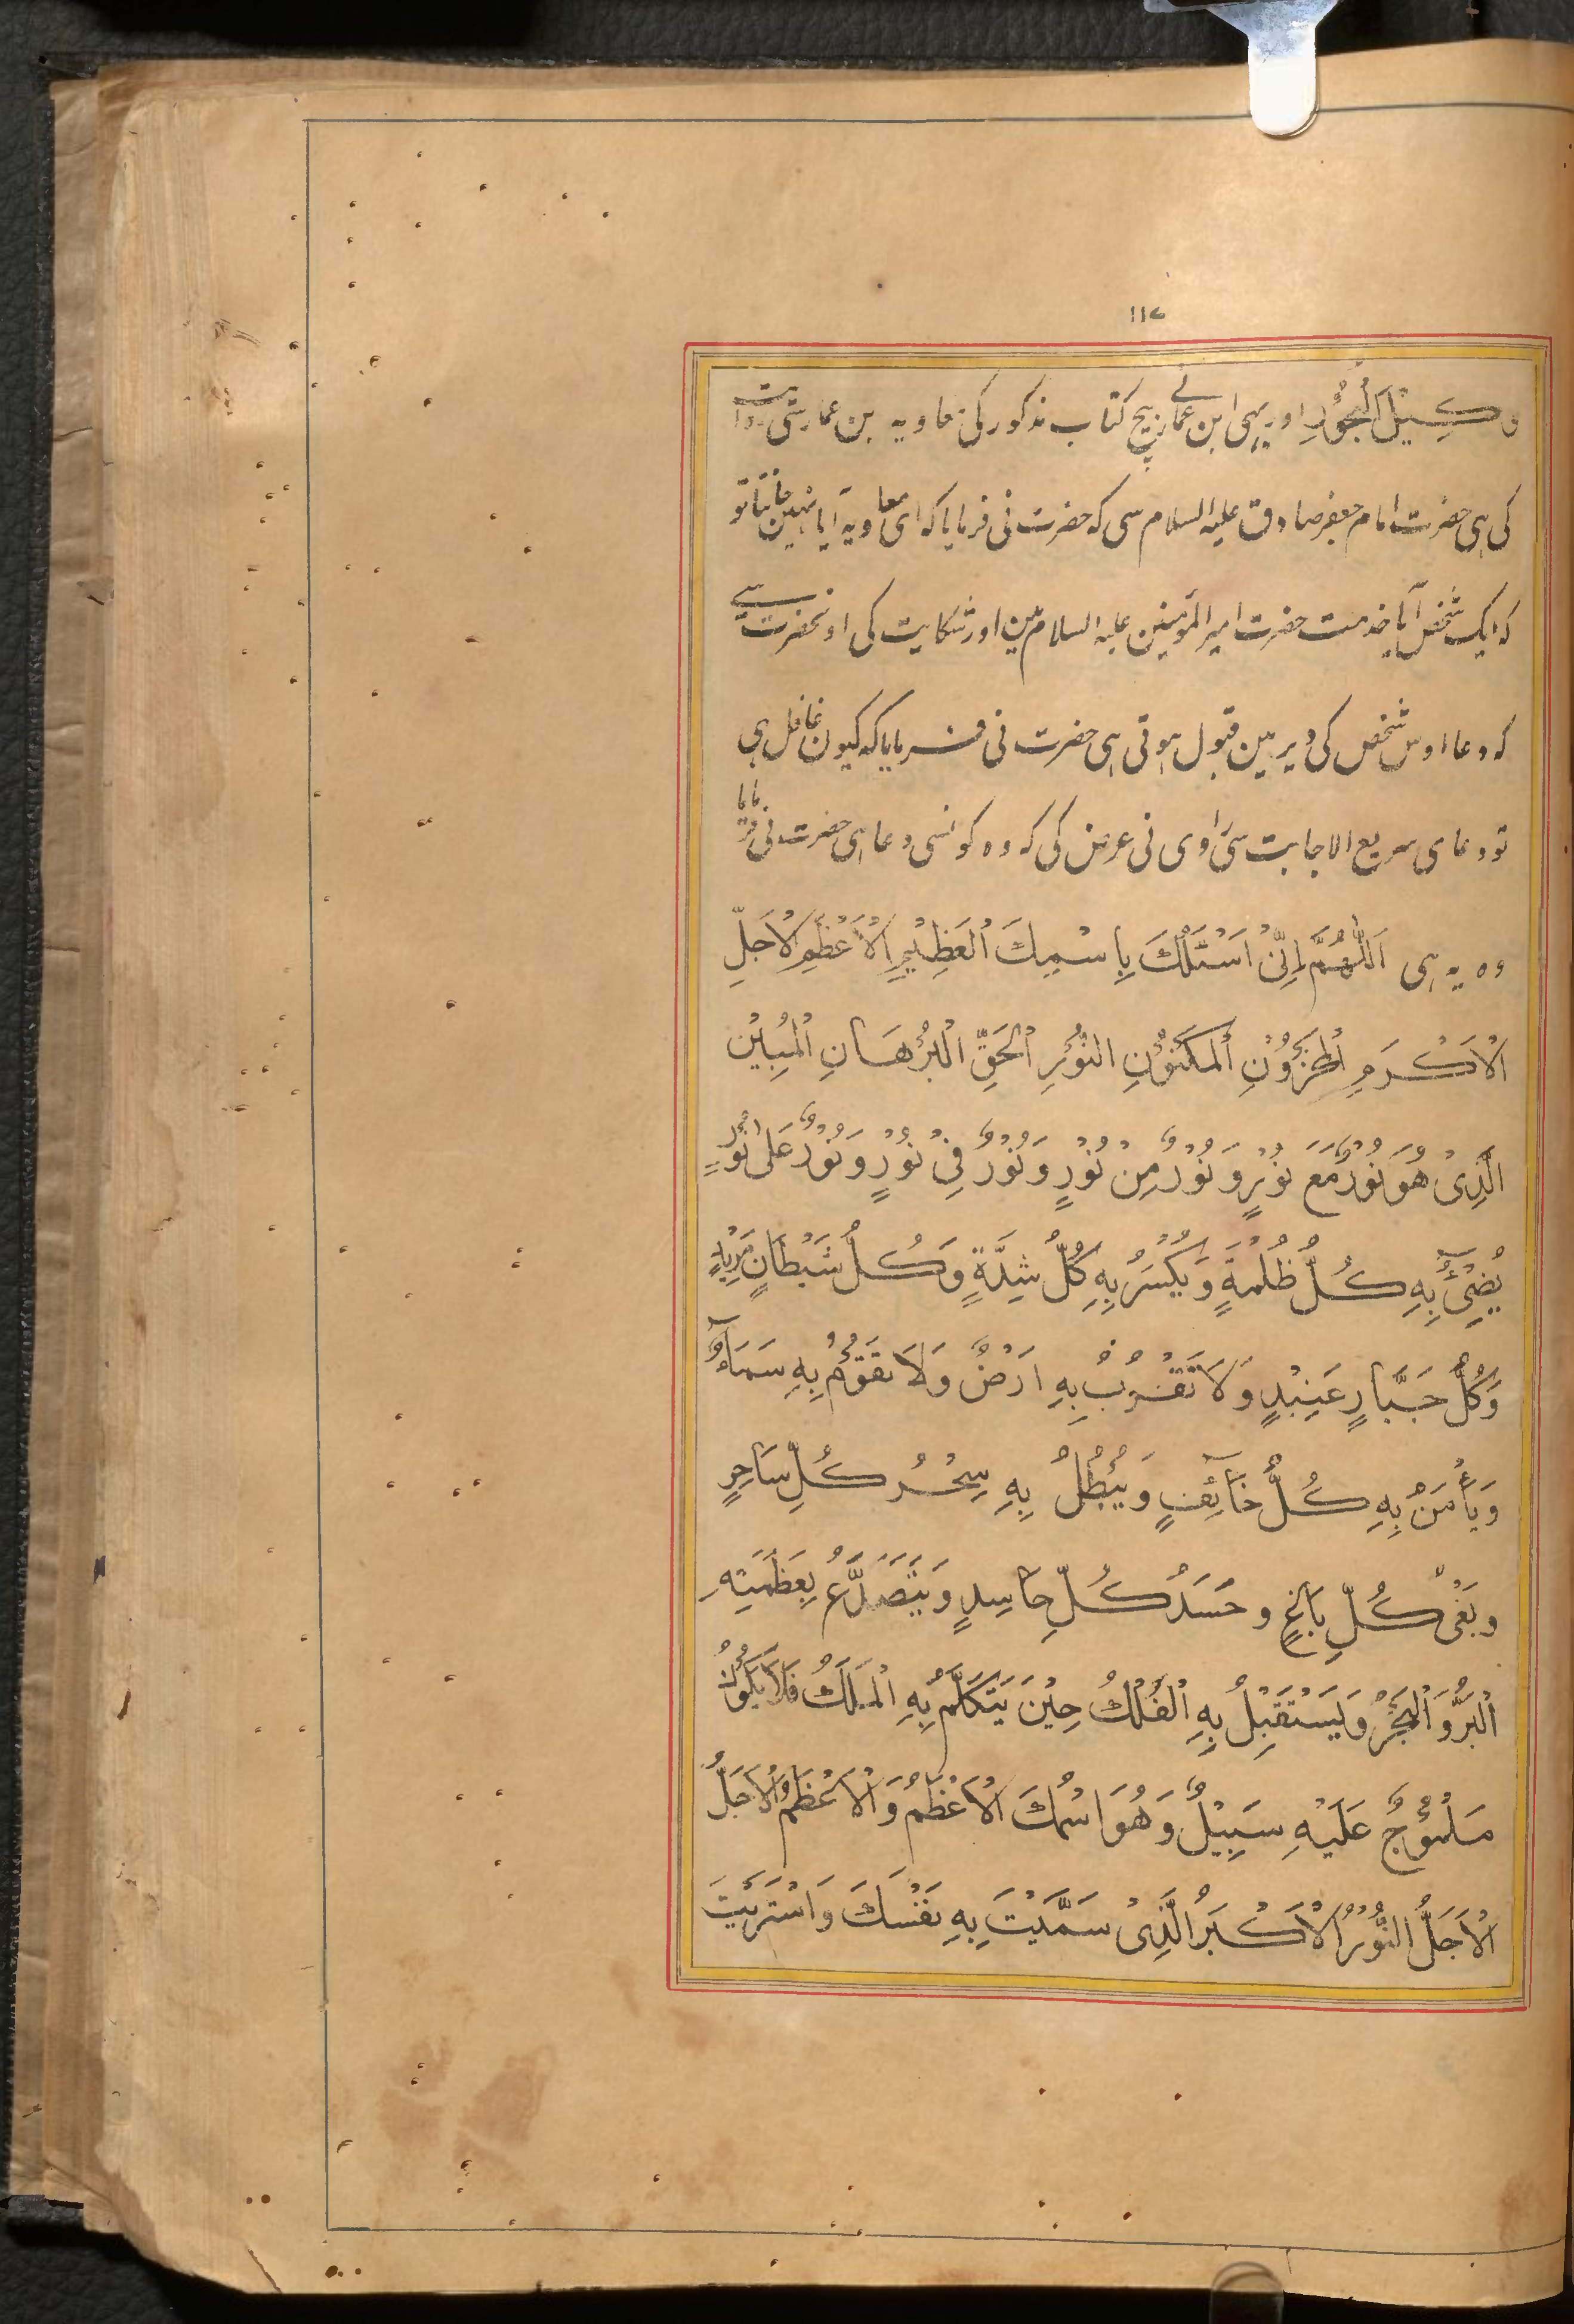 ۱۱۷
و كَيْلَ الْبُحُوْرِ اور یہی ابن عمار نے بیچ کتاب مذکور کی معاویہ بن عمار ستی روایت
کی ہی حضرت امام جعفر صادق علیہ السلام سی کہ حضرت نی فرمایا کہ ای معاویہ آیا نہین جانتا تو
کہ ایک شخص آیا خدمت حضرت امیر المومنین علیہ السلام مین اور شکایت کی اونحضرت سے
کہ دعا اوس شخص کی دیر مین قبول ہوتی ہی حضرت نی فرمایا کہ کیون غافل ہی
تو دعای سریع الاجابت سی راوی نی عرض کی کہ وہ کونسی دعا ہی حضرت نی فرمایا
وہ یہ ہی اَللّٰهُمَّ اِنِّیْ اَسْئَلُكَ بِاسْمِكَ الْعَظِيْمِ الْاَعْظَمِ الْاَجَلِّ
الْاَكْرَمِ الْمَخْزُوْنِ الْمَكْنُوْنِ النُّوْرِ الْحَقِّ الْبُرْهَانِ الْمُبِيْنِ
الَّذِیْ هُوَ نُوْرٌ مَعَ نُوْرٍ وَ نُوْرٌ مِنْ نُوْرٍ وَ نُوْرٌ فِیْ نُوْرٍ وَ نُوْرٌ عَلٰی نُوْرٍ
يُضِیْٓءُ بِهِ كُلُّ ظُلْمَةٍ وَ يُكْسَرُ بِهِ كُلُّ شِدَّةٍ وَ كُلُّ شَيْطَانٍ مَرِيْدٍ
وَ كُلُّ جَبَّارٍ عَنِيْدٍ وَ لَا تَقْرُبُ بِهِ اَرْضٌ وَ لَا يَقُوْمُ بِهِ سَمَآءٌ
وَ يَأْمَنُ بِهِ كُلُّ خَآئِفٍ وَ يَبْطُلُ بِهِ سِحْرُ كُلِّ سَاحِرٍ
وَ بَغْیُ كُلِّ بَاغٍ و حَسَدُ كُلِّ حَاسِدٍ وَ يَتَصَدَّعُ بِعَظَمَتِهِ
الْبَرُّ وَ الْبَحْرُ وَ يَسْتَقِلُّ بِهِ الْفُلْكُ حِيْنَ يَتَكَلَّمُ بِهِ الْمَلَكُ فَلَا يَكُوْنُ
لِلْمَوْجِ عَلَيْهِ سَبِيْلٌ وَ هُوَ اسْمُكَ الْاَعْظَمُ وَ الْاَعْظَمُ الْاَجَلُّ
الْاَجَلُّ النُّوْرُ الْاَكْبَرُ الَّذِیْ سَمَّيْتَ بِهِ نَفْسَكَ وَ اسْتَوَيْتَ